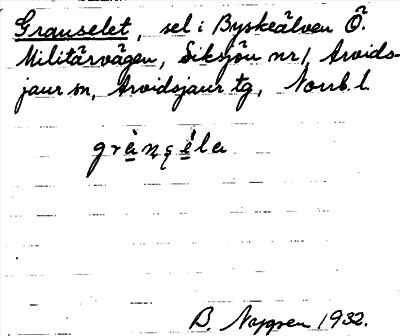 Granselet, sel i Byskeälven Ö.
Militärvägen, Siksjön nr 1, Arvids-
jaur sn, Arvidsjaur tg, Norrb. l.
B. Nygren 1932.